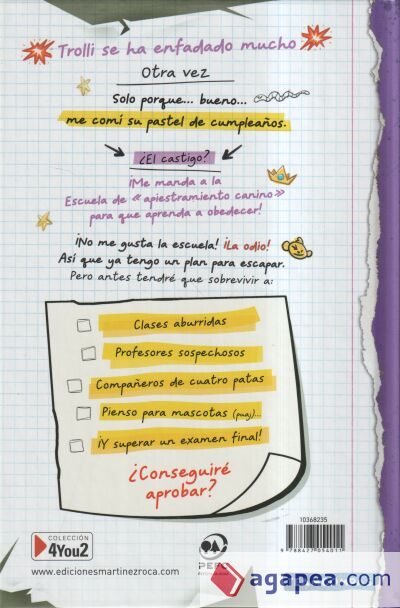 Trolli se ha enfadado mucho
Otra vez
Solo porque... bueno...
me comí su pastel de cumpleaños.
¿El castigo?
¡Me manda a la
Escuela de « apiestramiento canino»
para que aprenda a obedecer!
¡No me gusta la escuela! ¡La odio!
Así que ya tengo un plan para escapar.
Pero antes tendré que sobrevivir a:
Clases aburridas
Profesores sospechosos
Compañeros de cuatro patas
Pienso para mascotas (puaj)...
¡Y superar un examen final!
¿Conseguiré
aprobar?
COLECCIÓN
4You2
www.edicionesmartinezroca.com
PEFC
10368235
9 788427 054011
agapea.com